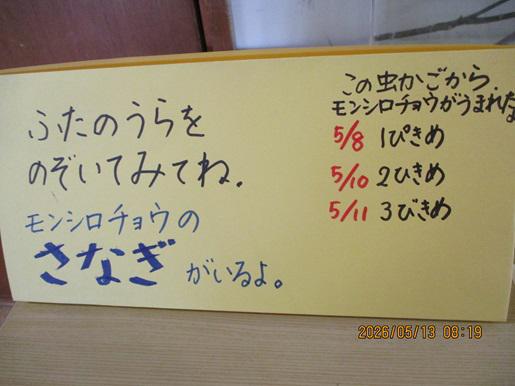 ふたのうらを
のぞいてみてね.
モンシロチョウの
さなぎ がいるよ。
この虫かごから、
モンシロチョウがうまれたよ
5/8 1ぴきめ
5/10 2ひきめ
5/11 3びきめ
2026/05/13 08:19